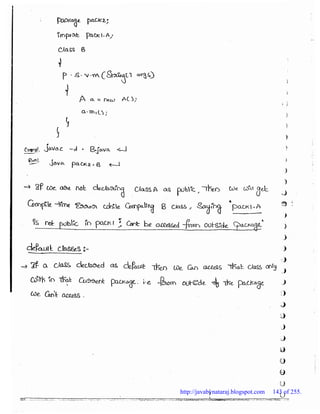 package pack2;
import pack1.A;
class B
{
p . s . v . m (String[] args)
{
A a = new A();
a.m1();
}
}
Compl. javac -d . B.java ↵
Run: java pack2.B ↵
→ If we are not declaring class A as public, then we will get
Compile-time Error while Compiling B class, Saying "pack1.A
is not public in pack1; Can't be accessed from outside package"
default classes :-
→ If a class declared as default then we can access that class only
with in that Current package. i.e from outside of the package
we Can't access.
http://javabynataraj.blogspot.com 143 of 255.